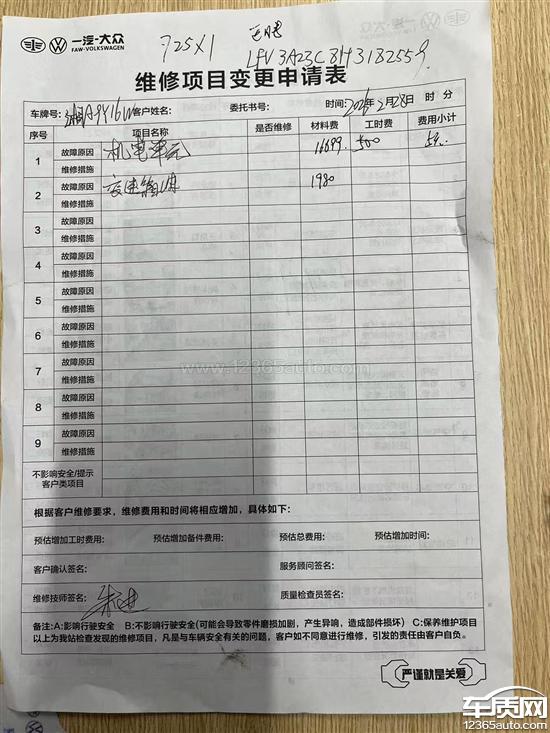 一汽-大众
FAW-VOLKSWAGEN
725X1
LFV3A23C8H3182559
维修项目变更申请表
车牌号: 湘A9Y16W 客户姓名: 委托书号: 时间: 2026年2月28日 时 分
序号 项目名称 是否维修 材料费 工时费 费用小计
1 故障原因 机电单元 16699 500
维修措施
2 故障原因 1980
维修措施
3 故障原因
维修措施
4 故障原因
维修措施
5 故障原因
维修措施
6 故障原因
维修措施
7 故障原因
维修措施
8 故障原因
维修措施
9 故障原因
维修措施
不影响安全/提示
客户类项目
www.12365auto.com
根据客户维修要求，维修费用和时间将相应增加，具体如下:
预估增加工时费用: 预估增加备件费用: 预估总费用: 预估增加时间:
客户确认签名: 服务顾问签名:
维修技师签名: 质量检查员签名:
备注:A:影响行驶安全 B:不影响行驶安全(可能会导致零件磨损加剧，产生异响，造成部件损坏) C:保养维护项目
以上为我站检查发现的维修项目，凡是与车辆安全有关的问题，客户如不同意进行维修，引发的责任由客户自负。
严谨就是关爱
车质网
12365auto.com